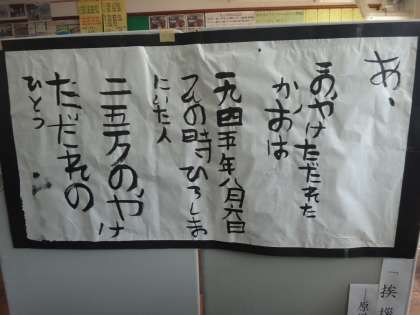 あ、
このやけただれた
かおは
一九四五年八月六日
その時ひろしま
にいた人
二五万のやけ
ただれの
ひとつ
「挨拶
原